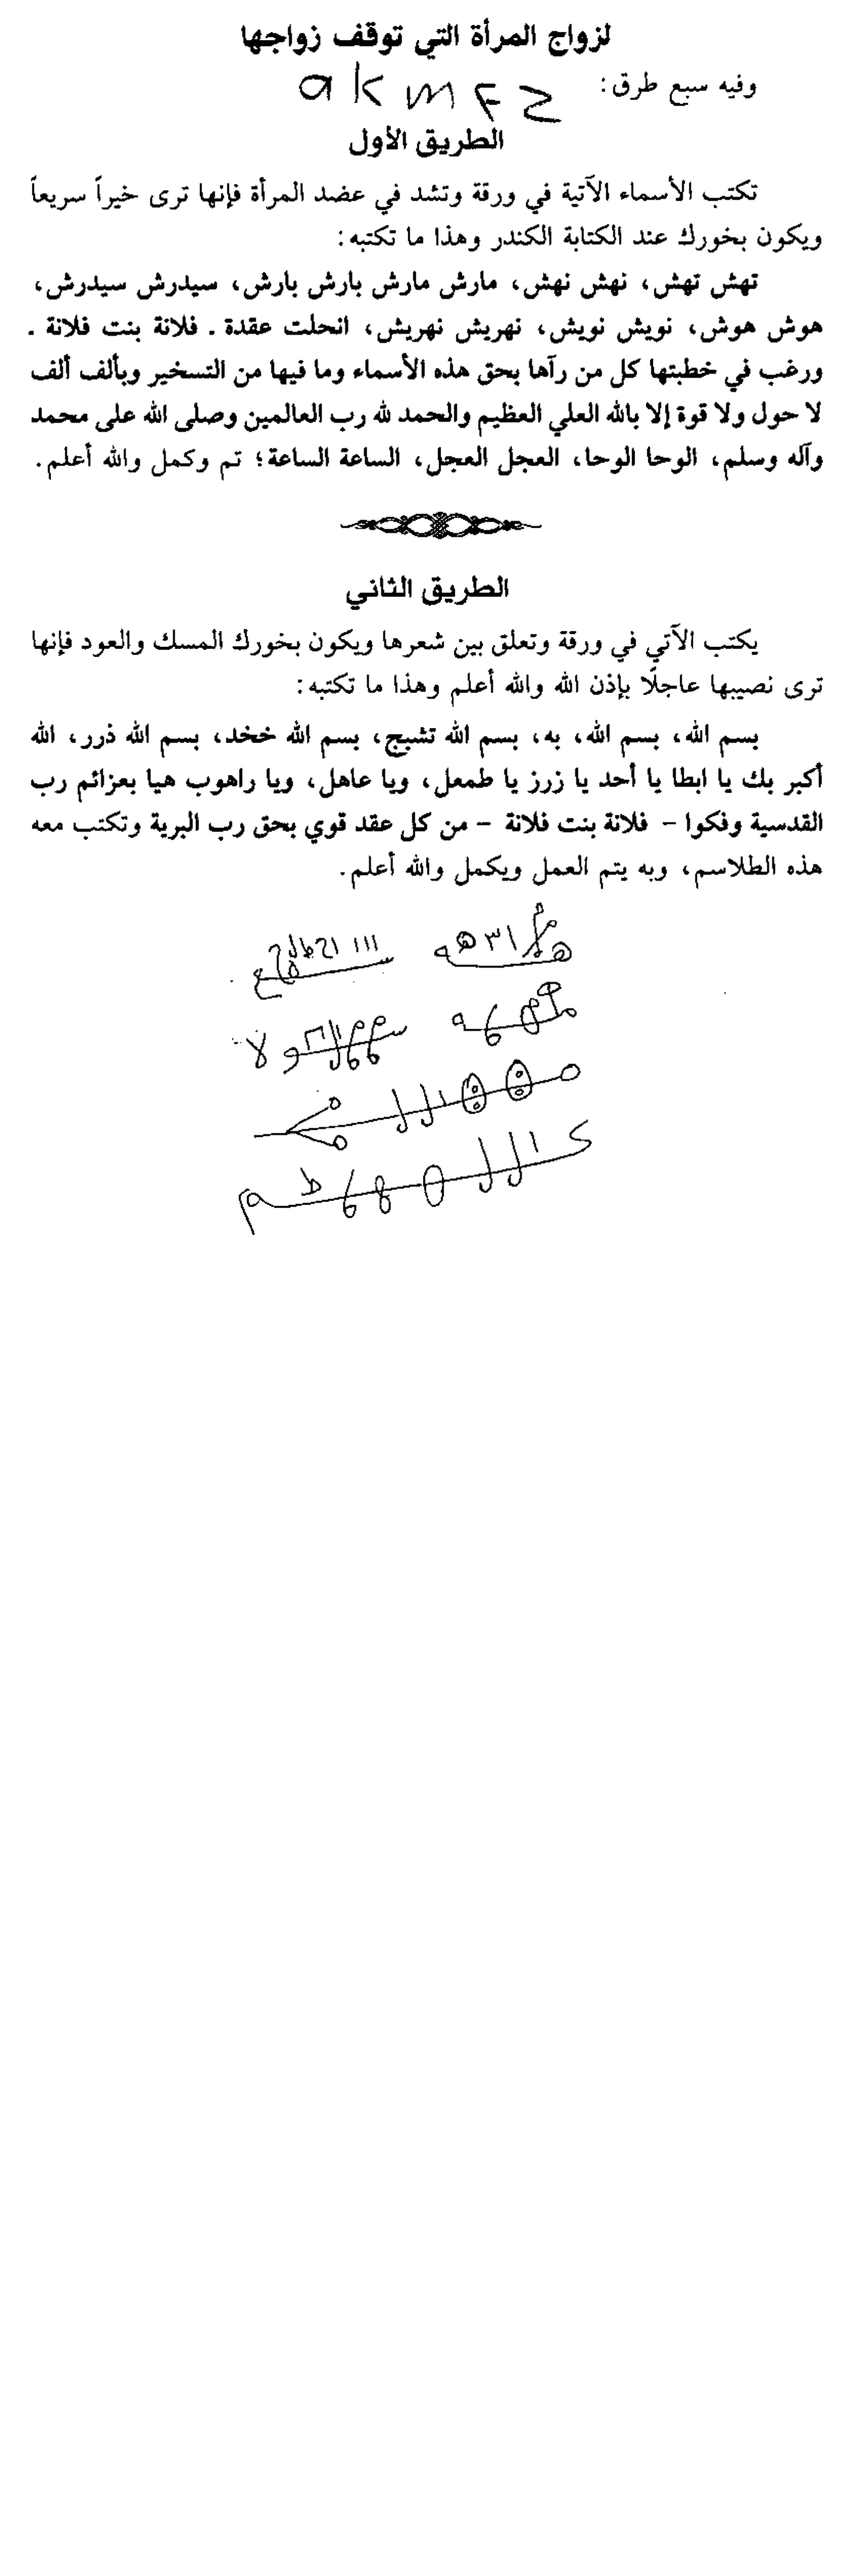 لزواج المرأة التي توقف زواجها
وفيه سبع طرق:
akmFz
الطريق الأول
تكتب الأسماء الآتية في ورقة وتشد في عضد المرأة فإنها ترى خيراً سريعاً
ويكون بخورك عند الكتابة الكندر وهذا ما تكتبه:
تهش تهش، نهش نهش، مارش مارش بارش بارش، سيدرش سيدرش،
هوش هوش، نويش نويش، نهريش نهريش، انحلت عقدة . فلانة بنت فلانة .
ورغب في خطبتها كل من رآها بحق هذه الأسماء وما فيها من التسخير وبألف ألف
لا حول ولا قوة إلا بالله العلي العظيم والحمد لله رب العالمين وصلى الله على محمد
وآله وسلم، الوحا الوحا، العجل العجل، الساعة الساعة؛ تم وكمل والله أعلم.
الطريق الثاني
يكتب الآتي في ورقة وتعلق بين شعرها ويكون بخورك المسك والعود فإنها
ترى نصيبها عاجلًا بإذن الله والله أعلم وهذا ما تكتبه:
بسم الله، بسم الله، به، بسم الله تشيج، بسم الله خخد، بسم الله ذرر، الله
أكبر بك يا ابطا يا أحد يا زرز يا طمعل، ويا عاهل، ويا راهوب هيا بعزائم رب
القدسية وفكوا – فلانة بنت فلانة – من كل عقد قوي بحق رب البرية وتكتب معه
هذه الطلاسم، وبه يتم العمل ويكمل والله أعلم.